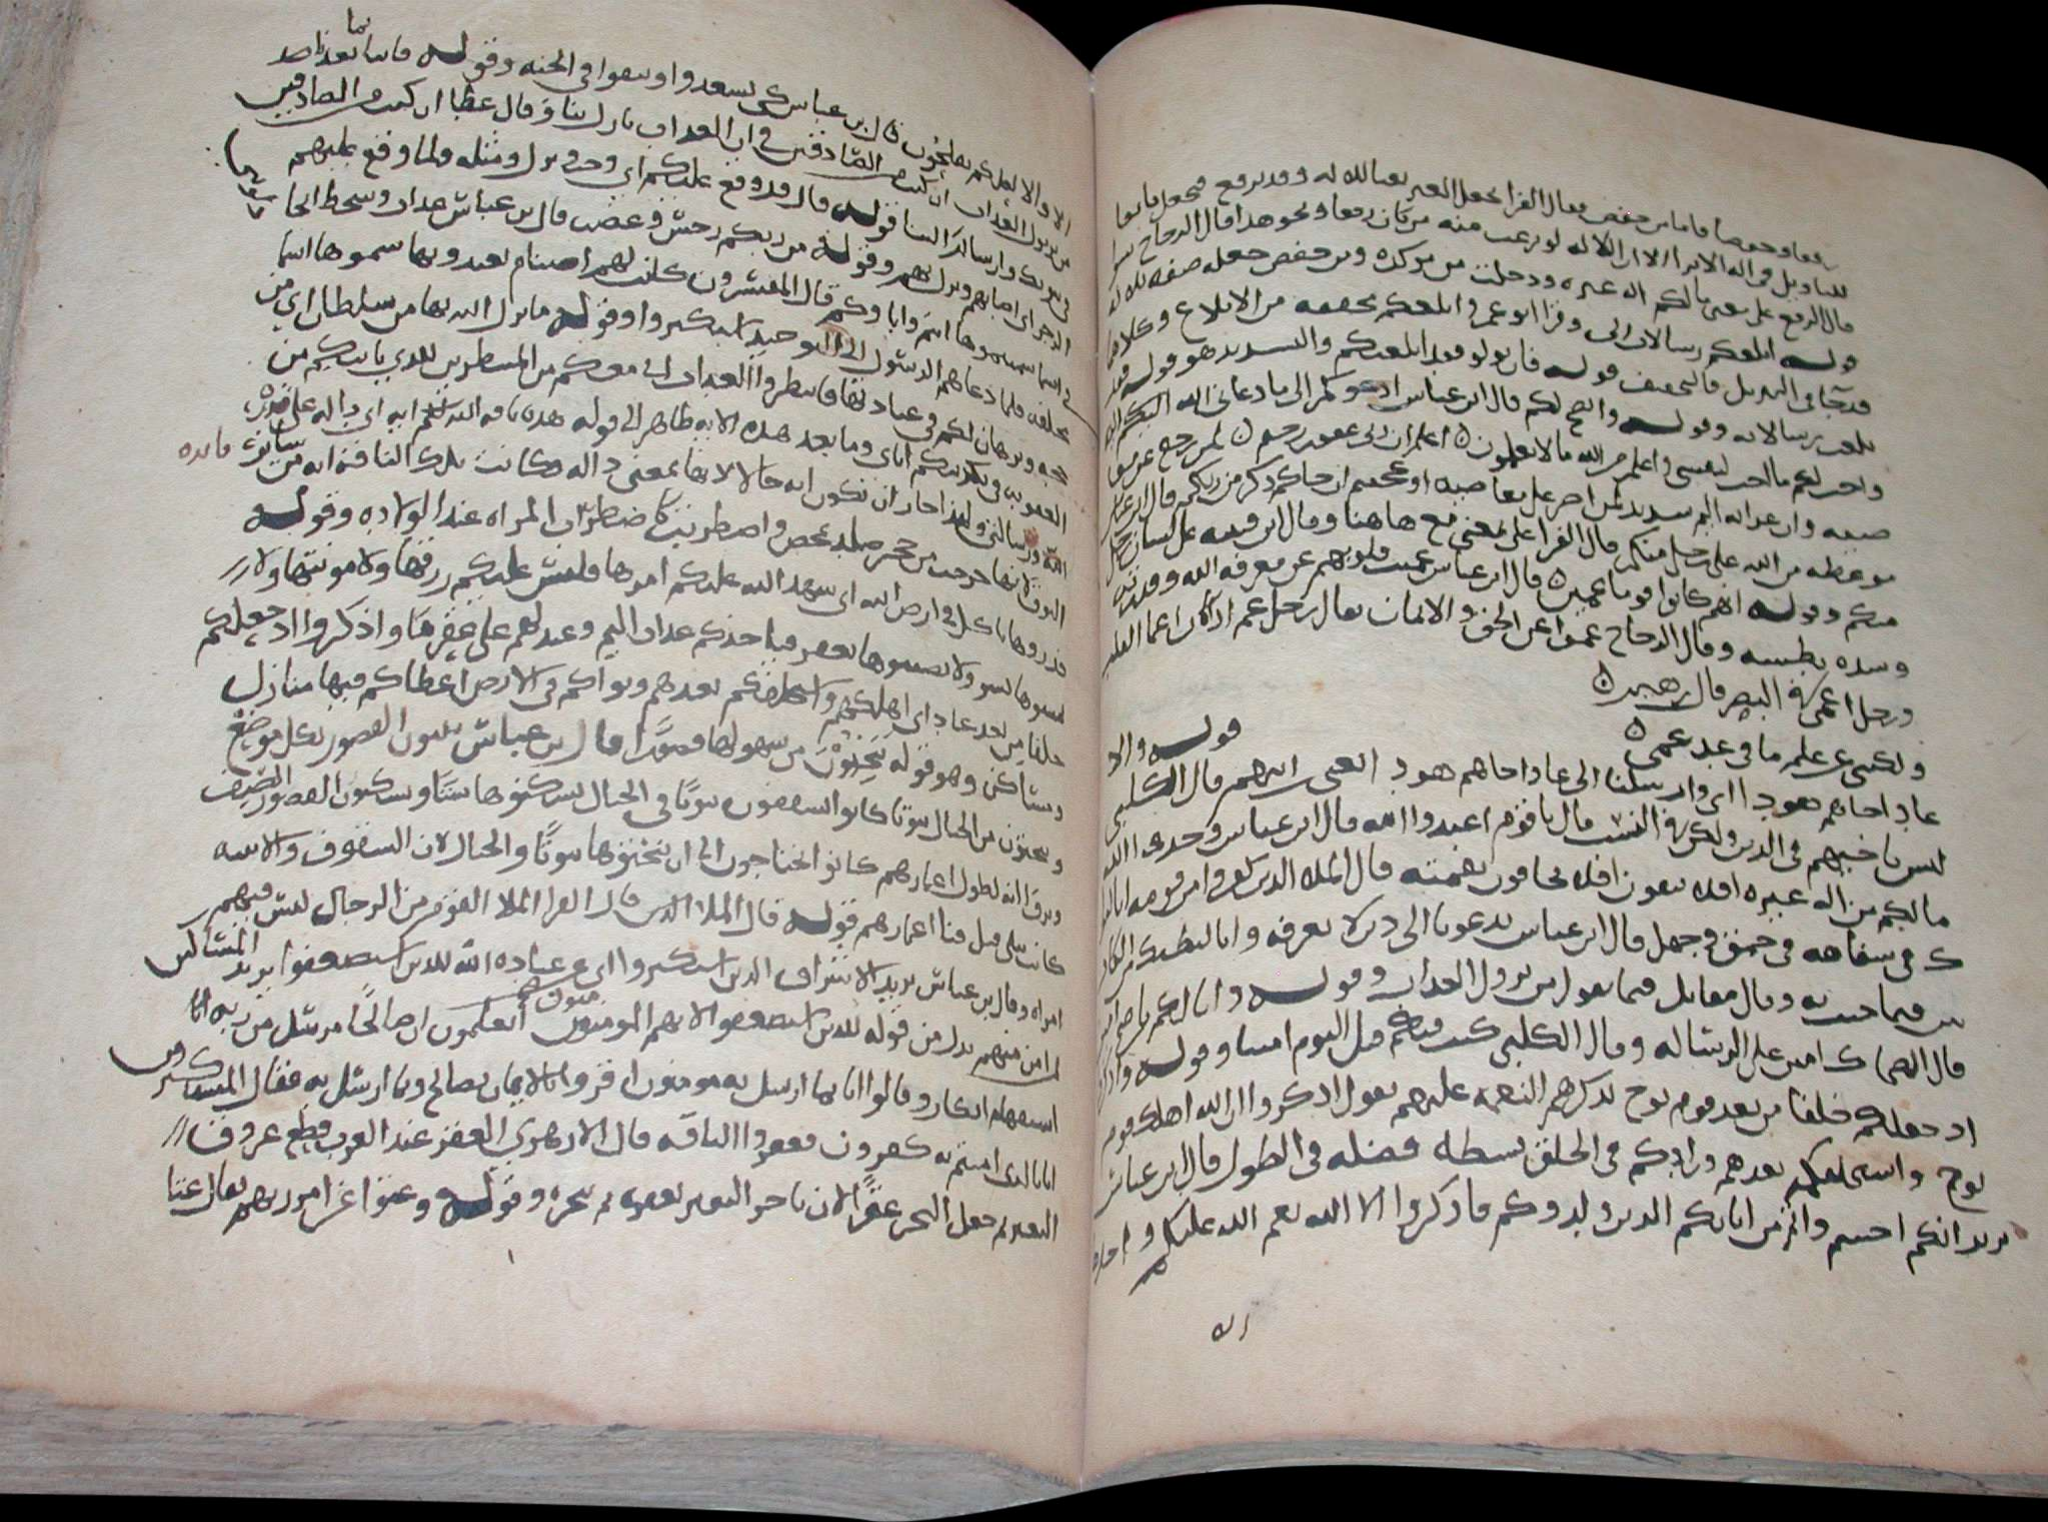 رفعا وخفضا فاما من خفض فقال الفرا يجعل لغير نعتا للاله وقد يرفع فيجعل تابعا
للتاويل في اله الا ترا ان الاله لو نزعت منه من كان رفعا ونحو هذا قال الزجاج
قال الرفع على معنى ما لكم اله غيره ودخلت من موكده ومن خفض جعله صفه لاله
قوله ابلغكم رسالات ربى وقرا ابو عمرو ابلغكم مخففه من الابلاغ وكلاهما
قد جا في التنزيل فالتخفيف قوله فان تولو فقد ابلغتكم والتشديد هو قوله فما
بلغت رسالاته وقوله وانصح لكم قال ابن عباس ادعوكم الى ما دعانى الله اليه
واحب لكم ما احب لنفسى واعلم من الله ما لا تعلمون ه اعلم ان ربى غفور رحيم ه لمن رجع عن
وان عذابه اليم شديد لمن اصر على معاصيه او عجبتم ان جاكم ذكر من ربكم قال ابن عباس
موعظه من الله على رجل منكم قال الفرا على بمعنى مع هاهنا وقال ابن قتيبه على لسان رجل
منكم وقوله انهم كانوا قوما عمين ه قال ابن عباس عميت قلوبهم عن معرفه الله وقدرته
وشده بطشه وقال الزجاج عموا عن الحق والايمان يقال رجل عم اذا كان اعما القلب
ورجل اعمى في البصر قال زهير ه
ولكننى عن علم ما في غد عمى ه
قوله والى
عاد اخاهم هودا اى وارسلنا الى عاد اخاهم هود ابن ابيهم قال الكلبى
ليس باخيهم في الدين ولكن في النسب قال يا قوم اعبدوا الله قال ابن عباس وحدوا الله
ما لكم من اله غيره افلا تتقون افلا تخافون نقمته قال الملا الذين كفروا من قومه انا لنرا
ك في سفاهه في حمق وجهل قال ابن عباس تدعونا الى دين لا نعرفه وانا لنظنك من الكاذ
بين فيما جيت به وقال مقاتل فيما تقول من نزول العذاب وقوله وانا لكم ناصح امين
قال الضحاك امين على الرساله وقال الكلبى كنت فيكم قبل اليوم امينا وقوله واذكروا
اذ جعلكم خلفا من بعد قوم نوح يذكرهم النعمه عليهم يقول اذكروا ان الله اهلك قوم
نوح واستخلفكم بعدهم وزادكم في الخلق بسطه فضله في الطول قال ابن عباس
يريد انكم اجسم واتم من ابايكم الذين ولدوكم فاذكروا الا الله نعم الله عليكم واحد
الا والا الى لعلكم تفلحون قال بن عباس كى تسعدوا وتبقوا في الجنه وقوله فاتنا بما تعدنا
من نزول العذاب ان كنت من الصادقين في ان العذاب نازل بنا وقال عطا ان كنت من الصادقين
في نبوتك وارسالك الينا قوله قال قد وقع عليكم اى وجب ونزل ومثله ولما وقع عليهم
الرجز اى اصابهم ونزل بهم وقوله من ربكم رجس وغضب قال بن عباس عذاب وسخط
في اسما سميتموها انتم واباوكم قال المفسرون كانت لهم اصنام يعبدونها سموها اسما
مختلفه فلما دعاهم الرسول الى التوحيد استكبروا وقوله ما نزل الله بها من سلطان اى من
حجه وبرهان لكم في عبادتها فانتظروا العذاب انى معكم من المنتظرين للذى ياتيكم من
العذاب في تكذيبكم اياى وما بعد هذه الايه ظاهر الى قوله هذه ناقه الله لكم ايه اى داله على
الله ورسالتى ولهذا جاز ان تكون ايه حالا لانها بمعنى داله وكانت تلك الناقه ايه من بين ساير
فايده
النوق لانها خرجت من حجر صلد بمخض واضطربت كاضطراب المراه عند الولاده وقوله
فذروها تاكل في ارض الله اى سهل الله عليكم امرها فليس عليكم رزقها ولا مونتها ولا
تمسوها بسو ولا تصيبوها بعقر فياخذكم عذاب اليم وعيد لهم على عقرها واذكروا اذ جعلكم
خلفا من بعد عاد اى اهلكهم واستخلفكم بعدهم وبواكم في الارض اعطاكم فيها منازل
ومساكن وهو قوله تتخذون من سهولها قصورا قال بن عباس تبنون القصور بكل موضع
وتنحتون من الجبال بيوتا كانوا يشقون بيوتا في الجبال يسكنوها شتا ويسكنون القصور الصيف
ويروا انه لطول اعمارهم كانوا يحتاجون الى ان ينحتوها بيوتا والجبال لان السقوف والابنيه
كانت تبلى قبل فنا اعمارهم قوله قال الملا الذين قال الفرا الملا القوم من الرجال ليس فيهم
امراه وقال بن عباس يريد الاشراف الذين استكبروا اى عن عباده الله للذين استضعفوا يريد المساكين
لمن امن منهم بدل من قوله للذين استضعفوا لانهم المومنون اتعلمون ان صالحا مرسل من ربه
استفهام انكار وقالوا انا بما ارسل به مومنون اقروا بالايمان بصالح وبما ارسل به فقال المستكبرون
انا بالذى امنتم به كفرون فعقروا الناقه قال الازهرى العقر عند العرب قطع عرقوب
البعير ثم جعل النحر عقرا لان ناحر البعير يعقره ثم ينحره وقوله وعتوا عن امر ربهم يقال عتا